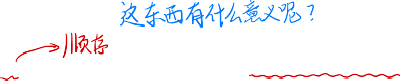 这东西有什么意义呢？
顺序